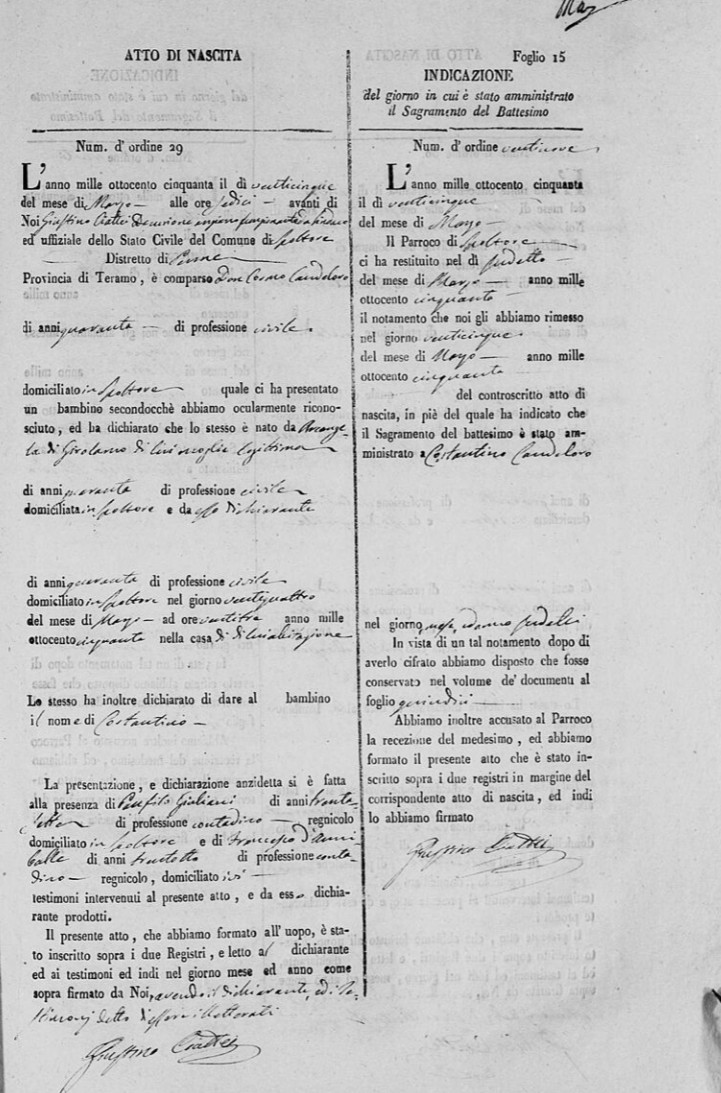 May
ATTO DI NASCITA
Num. d' ordine 29
L'anno mille ottocento cinquanta il dì venticinque
del mese di Marzo alle ore sedici avanti di
Noi Giustino Ciattei Decurione
ed uffiziale dello Stato Civile del Comune di Spoltore
Distretto di Penne
Provincia di Teramo, è comparso Don Cosmo Candeloro
di anni quaranta di professione civile
domiciliato in Spoltore quale ci ha presentato
un bambino secondocchè abbiamo ocularmente ricono-
sciuto, ed ha dichiarato che lo stesso è nato da Arcange-
la di Girolamo di lui moglie legittima
di anni quaranta di professione civile
domiciliata in Spoltore e da esso dichiarante
di anni quaranta di professione civile
domiciliato in Spoltore nel giorno ventiquattro
del mese di Marzo ad ore ventitre anno mille
ottocento cinquanta nella casa di di lui abitazione
Lo stesso ha inoltre dichiarato di dare al bambino
il nome di Costantino
La presentazione, e dichiarazione anzidetta si è fatta
alla presenza di Panfilo Giuliani di anni trenta-
sette di professione contadino regnicolo
domiciliato in Spoltore e di Francesco d'Anni-
balle di anni trentotto di professione conta-
dino regnicolo, domiciliato ivi
testimoni intervenuti al presente atto, e da esso dichia-
rante prodotti.
Il presente atto, che abbiamo formato all' uopo, è sta-
to inscritto sopra i due Registri, e letto al dichiarante
ed ai testimoni ed indi nel giorno mese ed anno come
sopra firmato da Noi, avendo il dichiarante, ed i te-
stimonj detto d'essere illetterati
Giustino Ciattei
Foglio 15
INDICAZIONE
del giorno in cui è stato amministrato
il Sagramento del Battesimo
Num. d' ordine ventinove
L'anno mille ottocento cinquanta
il di venticinque
del mese di Marzo
Il Parroco di Spoltore
ci ha restituito nel dì sudetto
del mese di Marzo anno mille
ottocento cinquanta
il notamento che noi gli abbiamo rimesso
nel giorno venticinque
del mese di Marzo anno mille
ottocento cinquanta
del controscritto atto di
nascita, in piè del quale ha indicato che
il Sagramento del battesimo è stato am-
ministrato a Costantino Candeloro
nel giorno, mese, ed anno sudetti
In vista di un tal notamento dopo di
averlo cifrato abbiamo disposto che fosse
conservato nel volume de' documenti al
foglio quindici
Abbiamo inoltre accusato al Parroco
la recezione del medesimo, ed abbiamo
formato il presente atto che è stato in-
scritto sopra i due registri in margine del
corrispondente atto di nascita, ed indi
lo abbiamo firmato
Giustino Ciattei